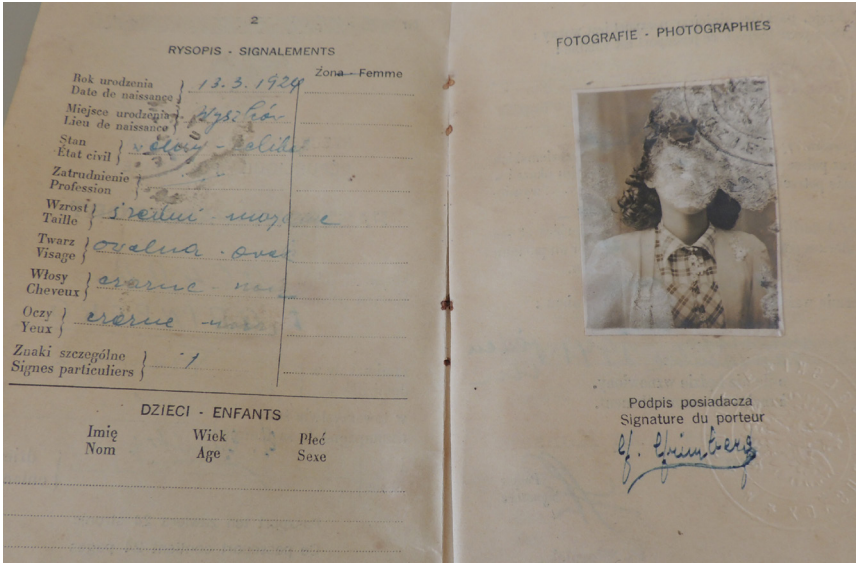 2
RYSOPIS - SIGNALEMENTS
Żona - Femme
Rok urodzenia
Date de naissance
13.3.1924
Miejsce urodzenia
Lieu de naissance
Wyszków
Stan
État civil
Zatrudnienie
Profession
Wzrost
Taille
średni - moyenne
Twarz
Visage
owalna - oval
Włosy
Cheveux
czarne - noir
Oczy
Yeux
czarne -
Znaki szczególne
Signes particuliers
DZIECI - ENFANTS
Imię Wiek Płeć
Nom Age Sexe
FOTOGRAFIE - PHOTOGRAPHIES
Podpis posiadacza
Signature du porteur
Grinberg